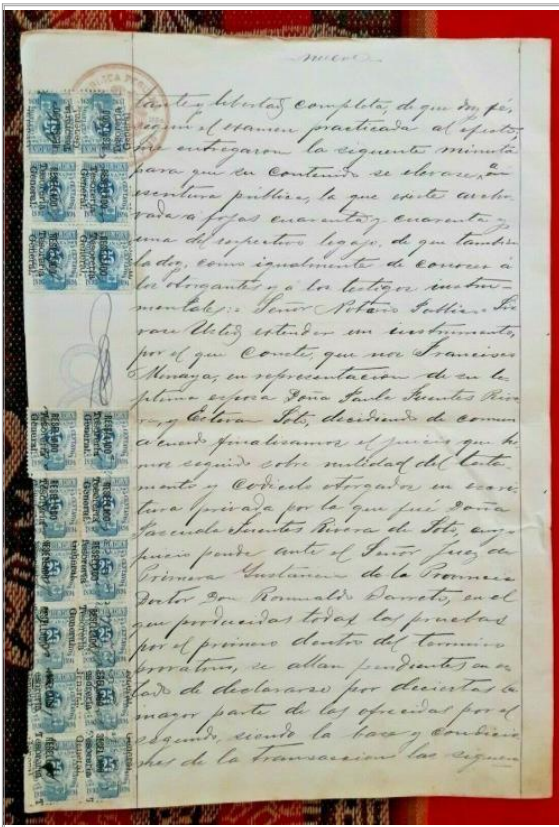 nueve
tante y libertad completa, de que doy fé,
segun el examen practicado al efecto,
me entregaron la siguiente minuta
para que su contenido se elevase á
escritura pública, la que existe archi-
vada á fojas cuarenta y cuarenta y
una del respectivo legajo, de que tambien
la doy, como igualmente de conocer á
los otorgantes y á los testigos instru-
mentales: Señor Notario Publico Sir-
vase Usted, estender un instrumento,
por el que conste, que nos Francisco
Monaya, en representacion de su le-
jitima esposa Doña Paula Fuentes Rive-
ra y Estevan Soto, decidiendo de comun
acuerdo finalisamos el juicio que he-
mos seguido sobre nulidad del testa-
mento y codicilo otorgados en escri-
tura privada por la que fué Doña
Pascuala Fuentes Rivera de Soto, cuyo
juicio pende ante el Señor Juez de
Primera Instancia de la Provincia
Doctor Don Romualdo Barreto, en el
que producidas todas las pruebas
por el primero dentro del termino
provatorio, se allan pendientes en es-
tado de declararse por deciertas la
mayor parte de las ofrecidas por el
segundo, siendo la base y condicio-
nes de la transaccion las siguien
RESELLADO
Tesorería
General
25